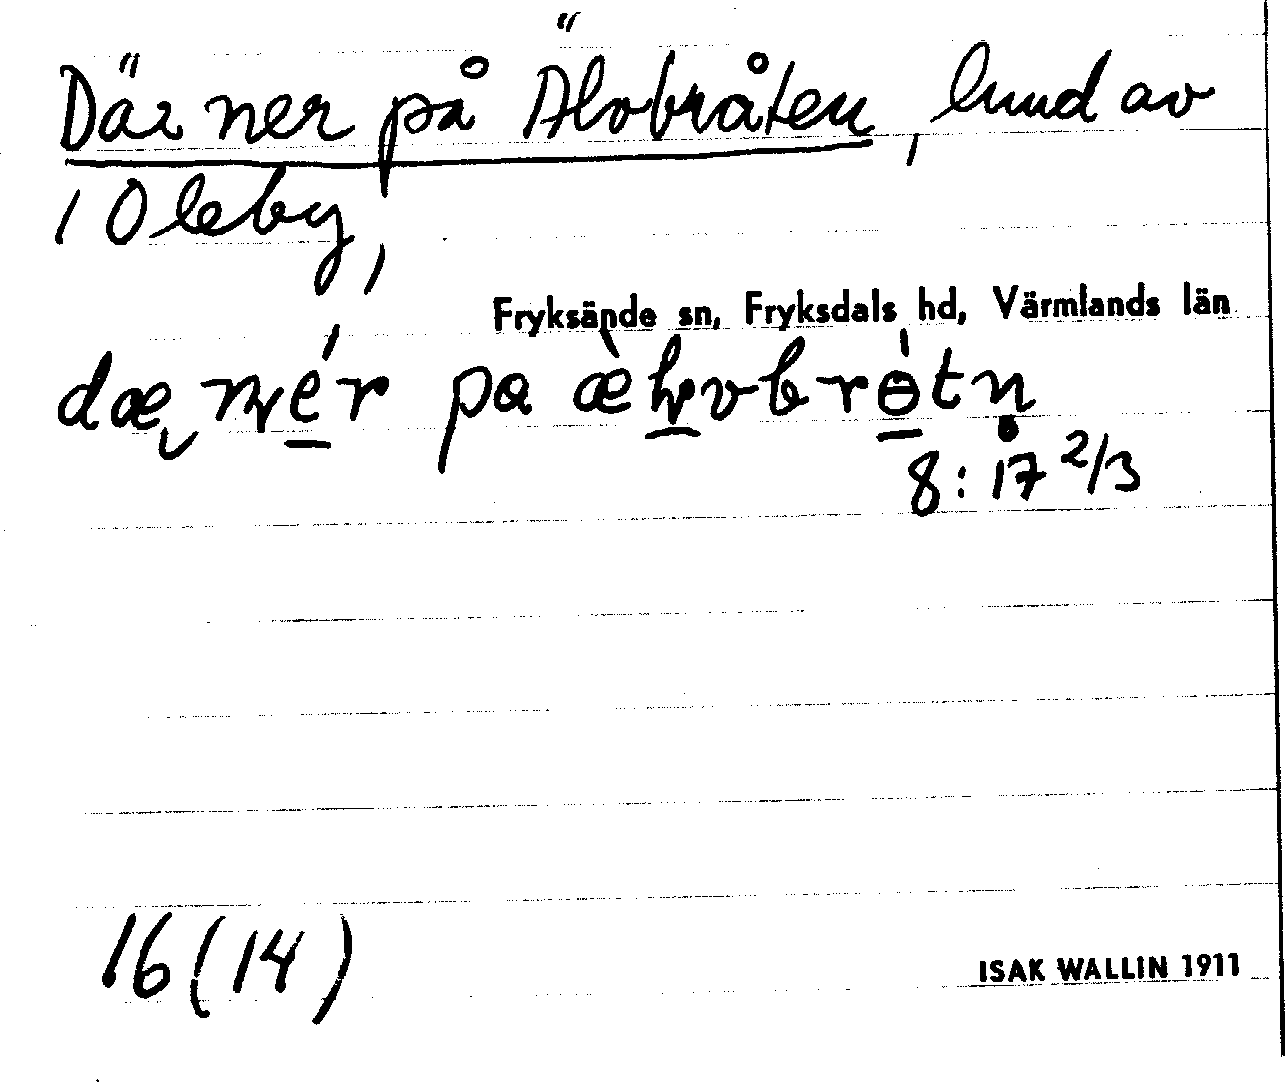 Där ner på Älvbråten, lund av
i Oleby,
Fryksände sn, Fryksdals hd, Värmlands län
8:17 2/3
16 (14)
ISAK WALLIN 1911